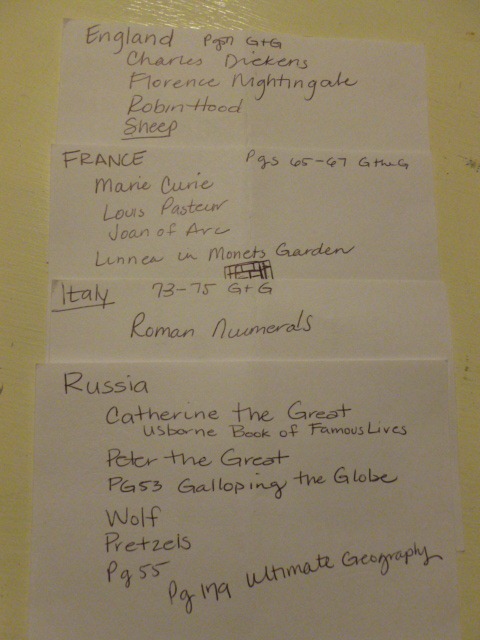 England Pg 71 G+G
Charles Dickens
Florence Nightingale
Robin Hood
Sheep
FRANCE Pgs 65-67 G the G
Marie Curie
Louis Pasteur
Joan of Arc
Linnea in Monets Garden
Italy 73-75 G+G
Roman Numerals
Russia
Catherine the Great
Usborne Book of Famous Lives
Peter the Great
PG53 Galloping the Globe
Wolf
Pretzels
Pg 55
Pg 179 Ultimate Geography